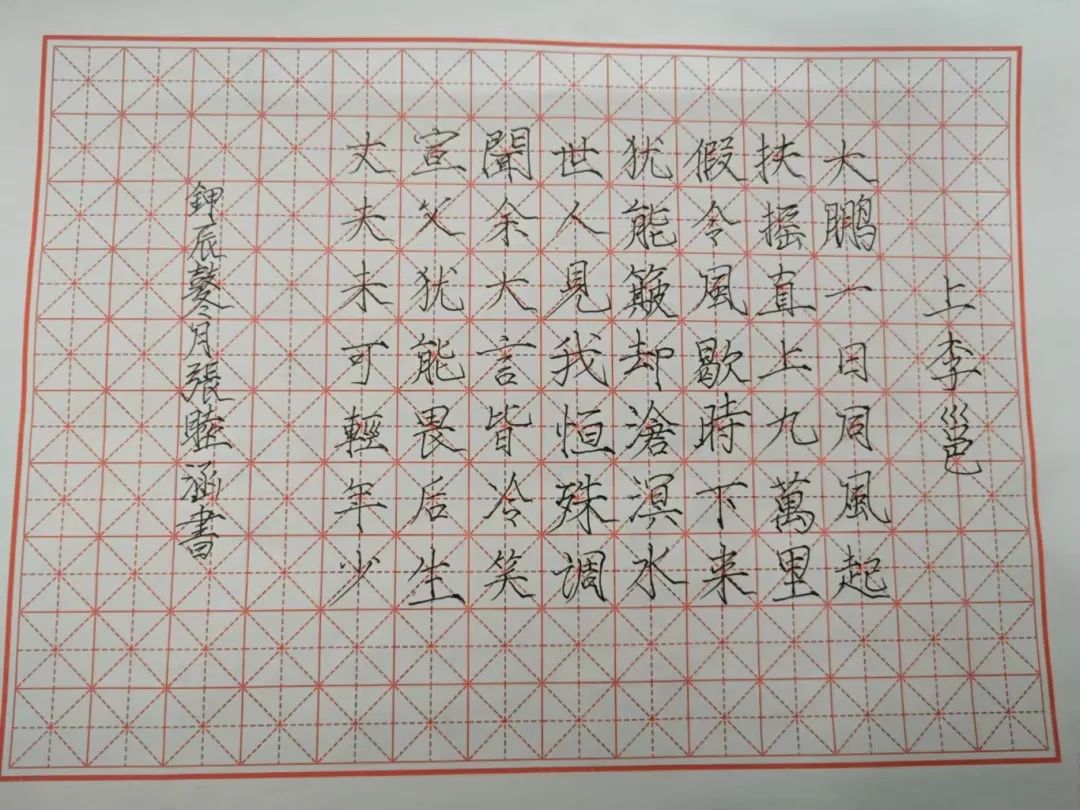 上李邕
大鹏一日同風起
扶摇直上九萬里
假令風歇時下来
犹能簸却滄溟水
世人見我恒殊调
聞余大言皆冷笑
宣父犹能畏后生
丈夫未可輕年少
鉀辰鼕月張睦涵書